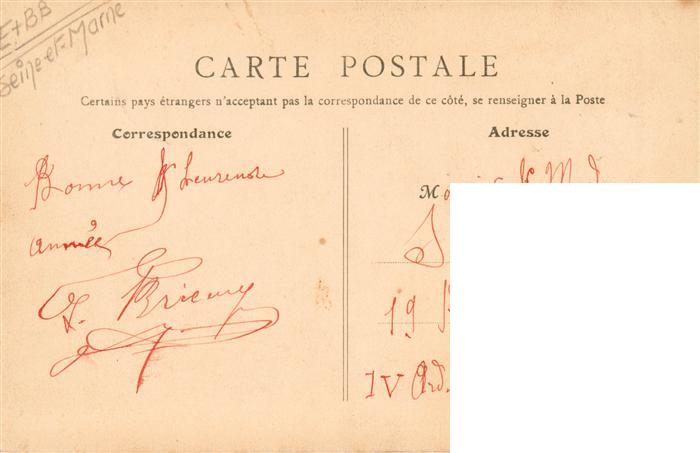 E+BB
Seine-et-Marne
CARTE POSTALE
Certains pays étrangers n'acceptant pas la correspondance de ce côté, se renseigner à la Poste
Correspondance
Adresse
Bonne & heureuse
année
M
19
IV Ard.